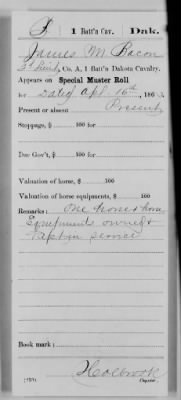 B | 1 Batt'n Cav. | Dak.
James M Bacon
1st Lieut, Co. A, 1 Batt'n Dakota Cavalry.
Appears on Special Muster Roll
for dated Apl. 16th, 186
Present or absent Present
Stoppage, $ 100 for
Due Gov't, $ 100 for
Valuation of horse, $ 100
Valuation of horse equipments, $ 100
Remarks: One horse & horse
Equipments owned &
kept in service
Book mark:
Holbrook
Copyist.